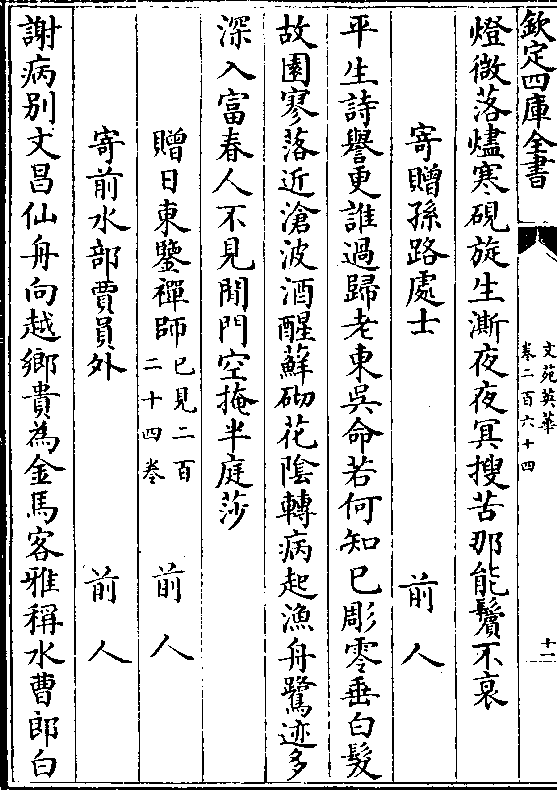 欽定四庫全書
文苑英華
卷二百六十四
十一
燈微落燼寒硯旋生澌夜夜冥搜苦那能鬢不衰
寄贈孫路處士
前人
平生詩譽更誰過歸老東吳命若何知已彫零垂白髮
故園寥落近滄波酒醒蘇砌花陰轉病起漁舟鷺迹多
深入富春人不見閒門空掩半庭莎
贈日東鑒禪師
已見二百
二十四卷
前人
寄前水部賈員外
前人
謝病別文昌仙舟向越鄉貴為金馬客雅稱水曹郎白